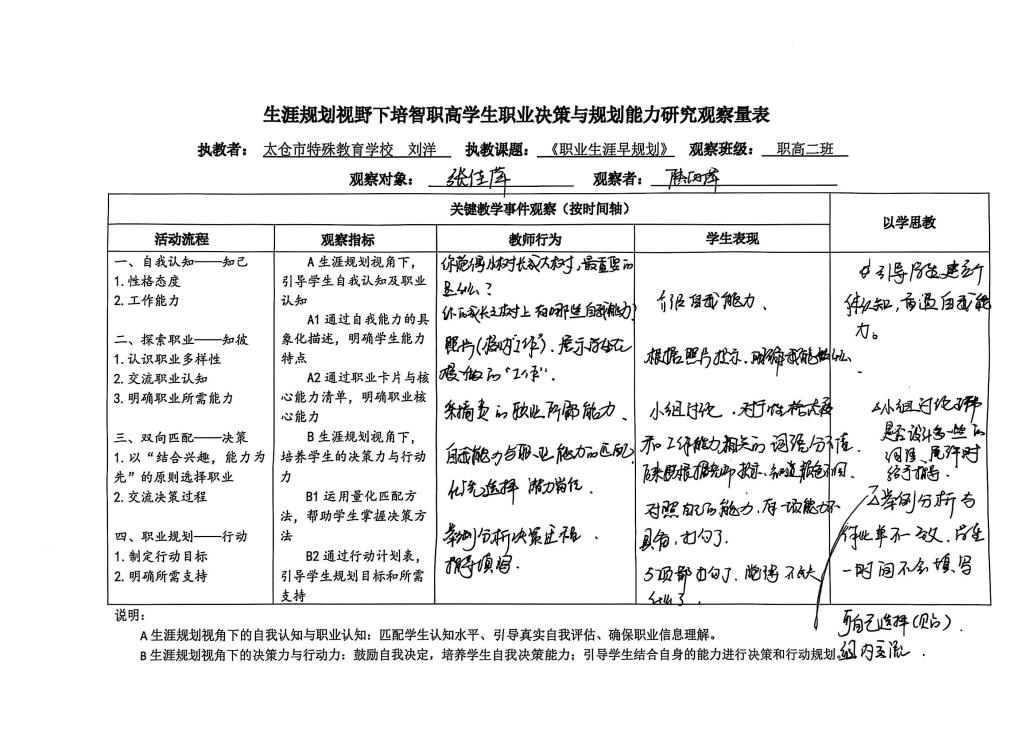 生涯规划视野下培智职高学生职业决策与规划能力研究观察量表
执教者： 太仓市特殊教育学校 刘洋 执教课题： 《职业生涯早规划》 观察班级： 职高二班
观察对象： 张佳萍 观察者：
关键教学事件观察（按时间轴）
以学思教
活动流程 观察指标 教师行为 学生表现
一、自我认知——知己
1.性格态度
2.工作能力
二、探索职业——知彼
1.认识职业多样性
2.交流职业认知
3.明确职业所需能力
三、双向匹配——决策
1.以“结合兴趣，能力为
先”的原则选择职业
2.交流决策过程
四、职业规划——行动
1.制定行动目标
2.明确所需支持
A 生涯规划视角下，
引导学生自我认知及职业
认知
A1 通过自我能力的具
象化描述，明确学生能力
特点
A2 通过职业卡片与核
心能力清单，明确职业核
心能力
B 生涯规划视角下，
培养学生的决策力与行动
力
B1 运用量化匹配方
法，帮助学生掌握决策方
法
B2 通过行动计划表，
引导学生规划目标和所需
支持
你觉得小树长成大树，最重要的
是什么？
你的成长树上有哪些自我能力？
照片（校内工作）、展示学生在
做的“工作”．
的职业所需能力．
自我能力与职业能力的匹配
优先选择 潜力岗位．
案例分析决策
指导填写．
介绍自我能力、
根据照片提示．明确
小组讨论．对于性格态度
和工作能力相关的词语分不清
对照自己的能力．有一项能力不
具备，打勾了．
5项都打勾了．觉得不缺
什么了．
引导学生建立个
体认知，
力。
小组讨论
是否设计
词语、
给予指导．
案例分析与
作业单不一致．学生
一时间不会填写
可自己选择
组内交流．
说明：
A 生涯规划视角下的自我认知与职业认知：匹配学生认知水平、引导真实自我评估、确保职业信息理解。
B 生涯规划视角下的决策力与行动力：鼓励自我决定，培养学生自我决策能力；引导学生结合自身的能力进行决策和行动规划。